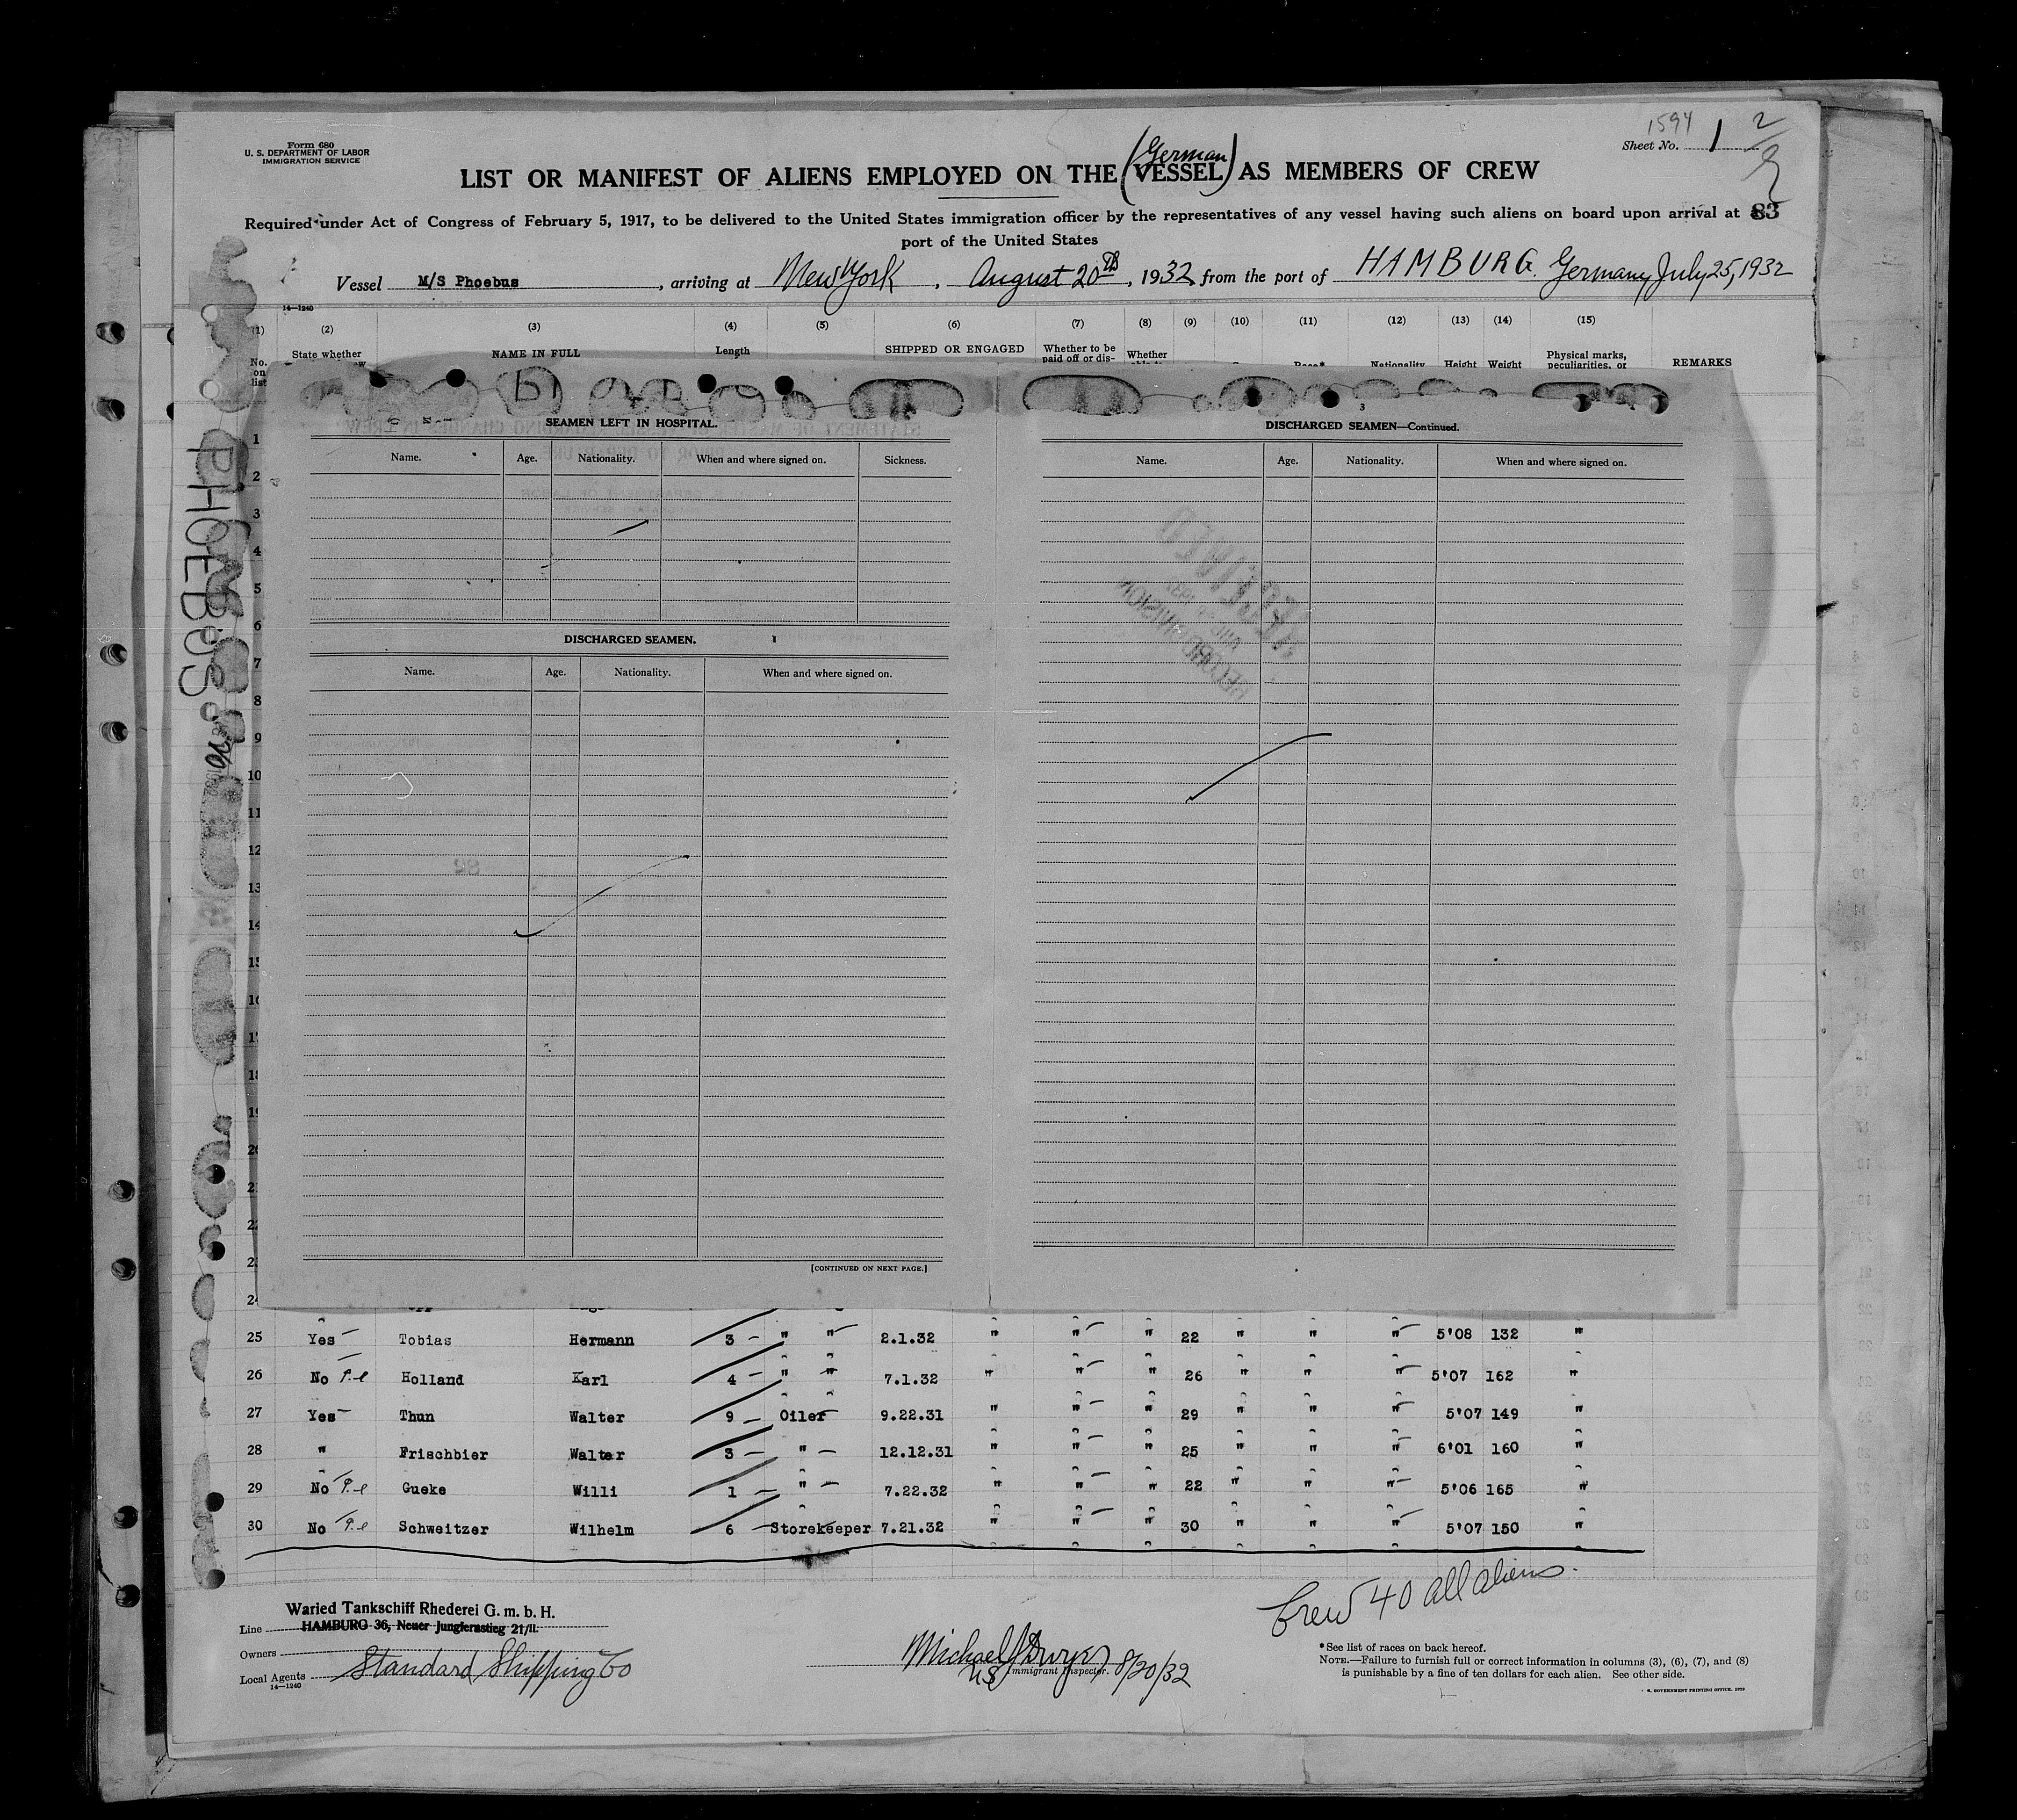 Form 680
U. S. DEPARTMENT OF LABOR
IMMIGRATION SERVICE
1594
Sheet No. 1
2
German
LIST OR MANIFEST OF ALIENS EMPLOYED ON THE (VESSEL) AS MEMBERS OF CREW
Required under Act of Congress of February 5, 1917, to be delivered to the United States immigration officer by the representatives of any vessel having such aliens on board upon arrival at 83
port of the United States
Vessel M/S Phoebus, arriving at New York, August 20th, 1932 from the port of HAMBURG. Germany, July 25, 1932
14—1240
(1) (2) (3) (4) (5) (6) (7) (8) (9) (10) (11) (12) (13) (14) (15)
No. on list
State whether
NAME IN FULL
Length
SHIPPED OR ENGAGED
Whether to be paid off or dis-
Whether
Race*
Nationality
Height
Weight
Physical marks, peculiarities, or
REMARKS
PHOEBUS
3
SEAMEN LEFT IN HOSPITAL.
Name. Age. Nationality. When and where signed on. Sickness.
DISCHARGED SEAMEN.
Name. Age. Nationality. When and where signed on.
[CONTINUED ON NEXT PAGE.]
DISCHARGED SEAMEN—Continued.
Name. Age. Nationality. When and where signed on.
RECEIVED
RECORD DIVISION
82
1
2
3
4
5
6
7
8
9
10
11
12
13
14
25 Yes — Tobias Hermann 3 — " " 2.1.32 " " " 22 " " " 5'08 132 "
26 No P.l Holland Karl 4 — " " 7.1.32 " " " 26 " " " 5'07 162 "
27 Yes — Thun Walter 9 — Oiler 9.22.31 " " " 29 " " " 5'07 149 "
28 " Frischbier Walter 3 — " 12.12.31 " " " 25 " " " 6'01 160 "
29 No P.l Gueke Willi 1 — " 7.22.32 " " " 22 " " " 5'06 165 "
30 No P.l Schweitzer Wilhelm 6 — Storekeeper 7.21.32 " " " 30 " " " 5'07 150 "
Crew 40 all aliens.
Waried Tankschiff Rhederei G. m. b. H.
Line HAMBURG 36, Neuer Jungfernstieg 21/II.
Owners
Local Agents Standard Shipping Co
14—1240
Michael J Dwyer
US Immigrant Inspector. 8/20/32
*See list of races on back hereof.
NOTE.—Failure to furnish full or correct information in columns (3), (6), (7), and (8)
is punishable by a fine of ten dollars for each alien. See other side.
GOVERNMENT PRINTING OFFICE. 1929